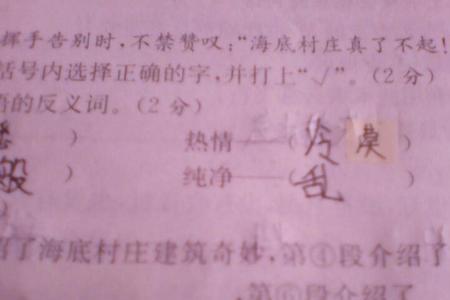 挥手告别时,不禁赞叹:“海底村庄真了不起!
括号内选择正确的字,并打上“√”。(2分)
的反义词。(2分)
) 热情——(冷漠)
般) 纯净——(乱)
)
绍了海底村庄建筑奇妙,第①段介绍了
,第⑥段介绍了